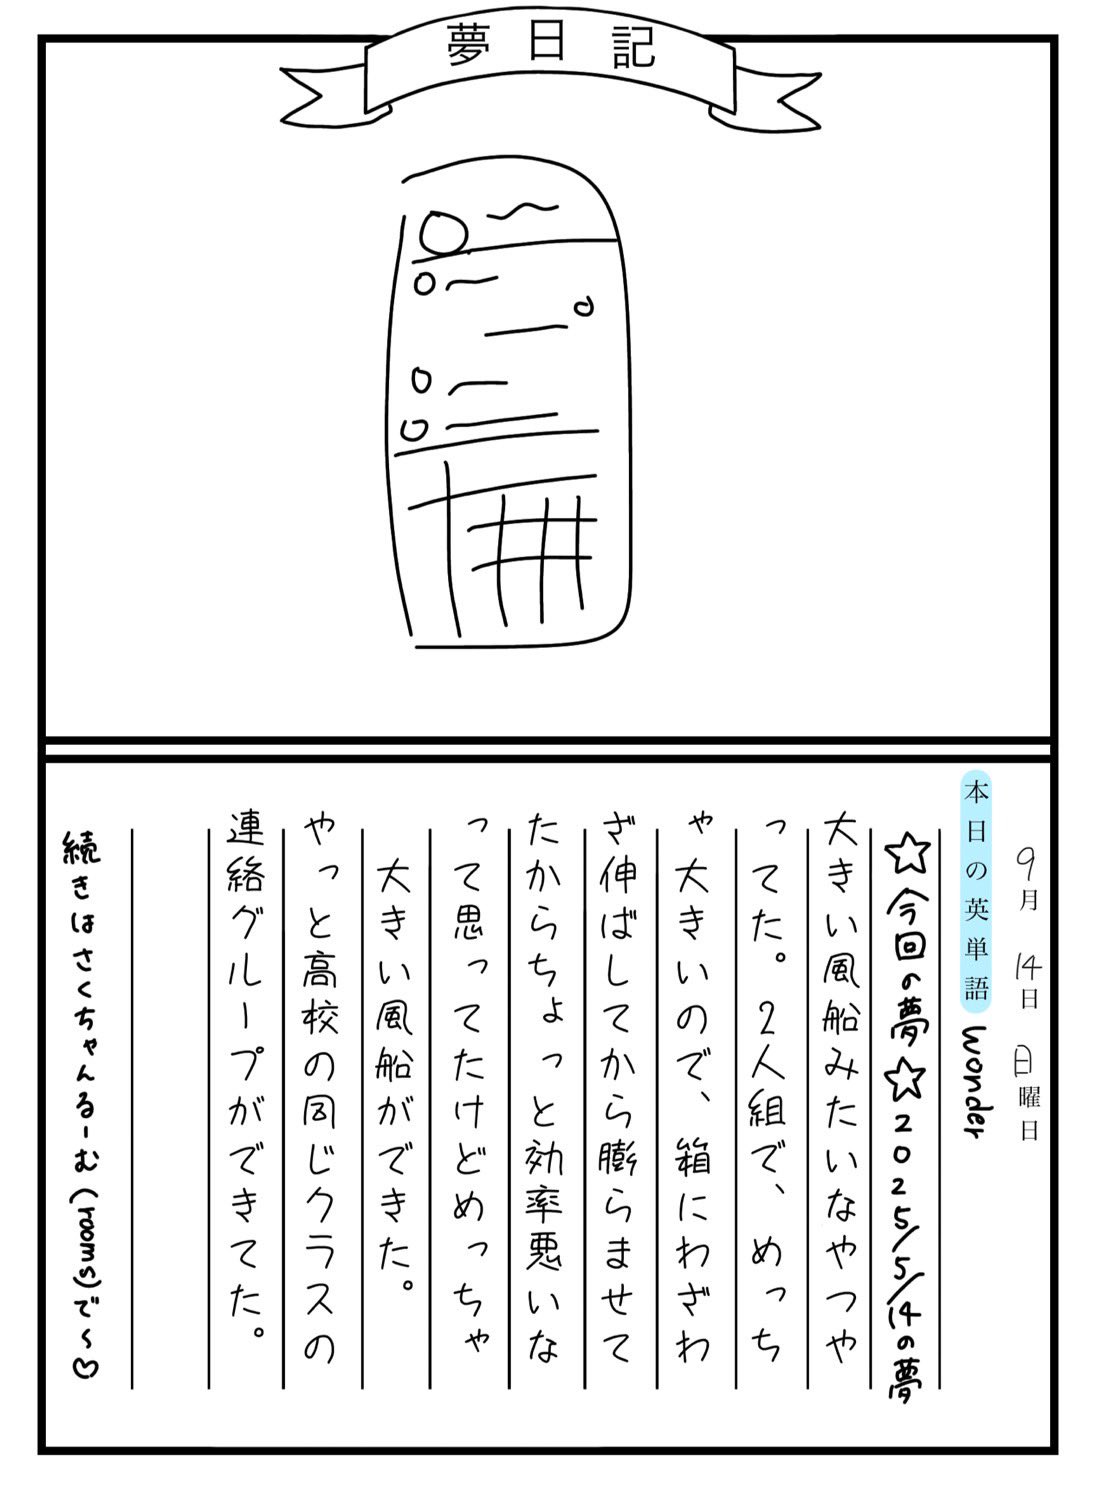 夢日記
9月 14日 日曜日
本日の英単語 wonder
☆今回の夢☆2025/5/14の夢
大きい風船みたいなやつや
ってた。2人組で、めっち
ゃ大きいので、箱にわざわ
ざ伸ばしてから膨らませて
たからちょっと効率悪いな
って思ってたけどめっちゃ
大きい風船ができた。
やっと高校の同じクラスの
連絡グループができてた。
続きはさくちゃんるーむ(rooms)で〜♡